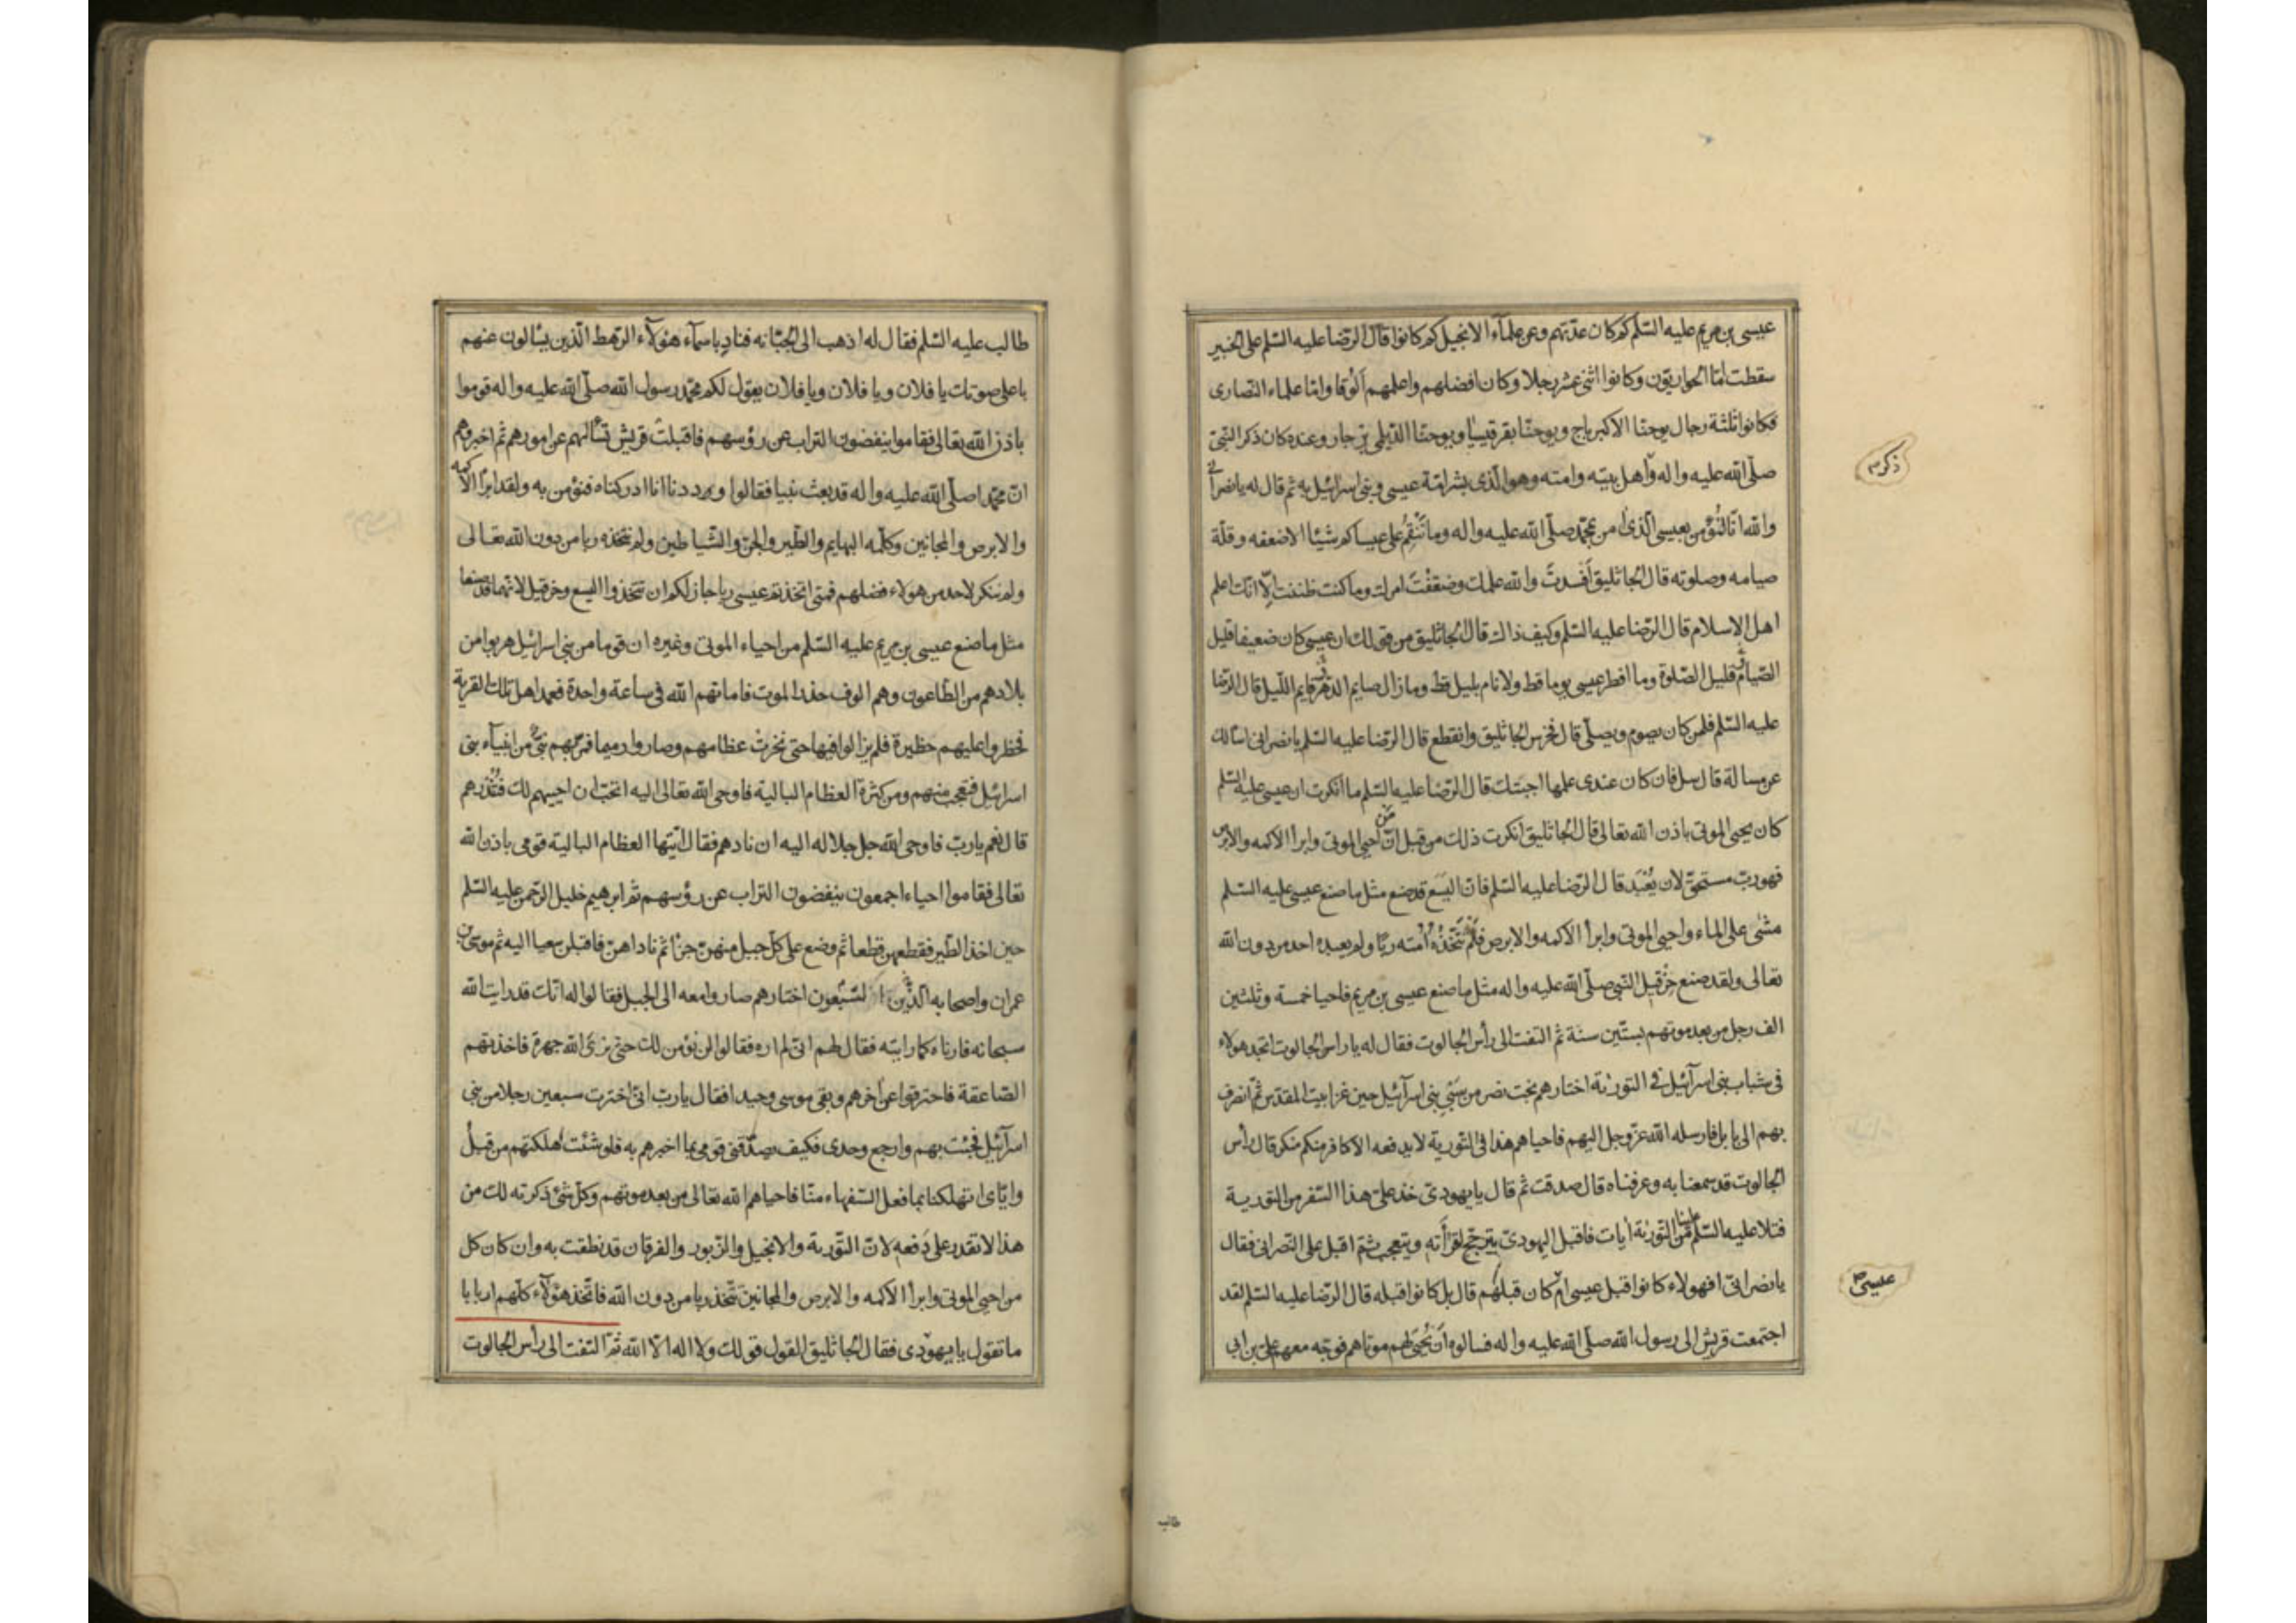 عيسى بن مريم عليه السّلم كم كان عدّتهم وعن علمآء الانجيل كم كانوا قال الرّضا عليه السّلم على الخبير
سقطت امّا الحواريّون وكانوا اثنى عشر رجلا وكان افضلهم واعلمهم اَلُوقا وامّا علماء النّصارى
فكانوا ثلثة رجال يوحنّا الاكبر باج ويوحنّا بقرقيسيا ويوحنّا الدّيلمى بزجار وعنده كان ذكر النّبىّ
صلّى الله عليه واله واهل بيته وامته وهو الّذى بشر امّة عيسى وبنى اسرائيل به ثم قال له يا نصرانى
والله انّا لنُؤمن بعيسى الّذى امن بمحمّد صلّى الله عليه واله وما نَنْقِمُ على عيساكم شيئا الا ضعفه وقلّة
صيامه وصلوته قال الجاثليق اَفسدتَ والله علمك وضعّفْتَ امرك وما كنت ظننت الّا انّك اعلم
اهل الاسلام قال الرّضا عليه السّلم وكيف ذاك قال الجاثليق من قولك ان عيسى كان ضعيفا قليل
الصّيام قليل الصّلوة وما افطر عيسى يوما قط ولا نام بليل قط وما زال صايم الدّهر قايم اللّيل قال الرّضا
عليه السّلم فلمن كان يصوم ويصلّى قال فخرس الجاثليق وانقطع قال الرّضا عليه السّلم يا نصرانى اسالك
عن مسالة قال سل فان كان عندى علمها اجبتك قال الرّضا عليه السّلم ما انكرت ان عيسى عليه السّلم
كان يحيى الموتى باذن الله تعالى قال الجاثليق انكرت ذلك من قبل انّ من احيى الموتى وابرأ الاكمه والابرص
فهو ربّ مستحقّ لان يُعْبَد قال الرّضا عليه السّلم فانّ اليَسَع قد صنع مثل ما صنع عيسى عليه السّلم
مشى على الماء واحيى الموتى وابرأ الاكمه والابرص فلَم تَتّخذْهُ اُمّته ربّا ولم يعبده احد من دون الله
تعالى ولقد صنع حِزْقيل النّبى صلّى الله عليه واله مثل ما صنع عيسى بن مريم فاحيا خمسة وثلثين
الف رجل من بعد موتهم بستّين سنة ثم التفت الى رأس الجالوت فقال له يا راس الجالوت اتجد هولاء
فى شباب بنى اسرآئيل فى التوريٰة اختارهم بخت نصر من سَبْىِ بنى اسرآئيل حين غزا بيت المقدس ثمّ انصرف
بهم الى بابل فارسله الله عزّ وجل اليهم فاحياهم هذا فى التّورية لا يدفعه الا كافر منكم منكر قال رأس
الجالوت قد سمعنا به وعرفناه قال صدقت ثم قال يا يهودىّ خذ علىّ هذا السّفر من التورية
فتلا عليه السّلم علينا من التّوريٰة ايات فاقبل اليهودىّ يترجّح لقرأته ويتعجّب ثمّ اقبل على النّصرانى فقال
يا نصرانىّ افهولاء كانوا قبل عيسى ام كان قبلهم قال بل كانوا قبله قال الرّضا عليه السّلم لقد
اجتمعت قريش الى رسول الله صلّى الله عليه واله فسالوه اَن يُحيِىَ لهم موتاهم فوجّه معهم علىّ بن ابى
طالب
عيسى
طالب عليه السّلم فقال له اذهب الى الجبّانه فنادِ باسمآء هؤلآء الرّهط الّذين يسْالون عنهم
باعلى صوتك يا فلان ويا فلان ويا فلان يقول لكم محمّد رسول الله صلّى الله عليه واله قوموا
باذن الله تعالى فقاموا ينفضون التراب عن رؤسهم فاقبلتْ قريش تسْألهم عن امورهم ثم اخبروهم
انّ محمّدا صلّى الله عليه واله قد بعث نبيا فقالوا وددنا انا ادركناه فنؤمن به ولقد ابرأ الاكمه
والابرص والمجانين وكلّمه البهايم والطّير والجنّ والشّياطين ولم نتخذه ربا من دون الله تعالى
ولم ننكر لاحد من هولاء فضلهم فمتى اتخذتم عيسى ربا جاز لكم ان تتخذوا اليسع وحزقيل لانّهما قد صنعا
مثل ما صنع عيسى بن مريم عليه السّلم من احياء الموتى وغيره ان قوما من بنى اسرائيل هربوا من
بلادهم من الطّاعون وهم الوف حذر الموت فاماتهم الله فى ساعة واحدة فعمد اهل تلك القرية
فحظروا عليهم حظيرة فلم يزالوا فيها حتى نخرتْ عظامهم وصاروا رميما فمرّ بهم نبىّ من انبيآء بنى
اسرائيل فتعجّب منهم ومن كثرة العظام البالية فاوحى الله تعالى اليه اتحبّ ان احييهم لك فتُنْذرهم
قال نعم يا ربّ فاوحى الله جلّ جلاله اليه ان نادهم فقال ايّتها العظام البالية قومى باذن الله
تعالى فقاموا احياء اجمعون ينفضون التراب عن رؤسهم ثم ابرهيم خليل الرّحمن عليه السّلم
حين اخذ الطّير فقطعهن قطعا ثم وضع على كلّ جبل منهنّ جزأ ثم ناداهنّ فاقبلن سعيا اليه ثم موسى بن
عمران واصحابه الّذين السّبْعون اختارهم صاروا معه الى الجبل فقالوا له انّك قد رايت الله
سبحانه فارناه كما رايته فقال لهم انّى لم اره فقالوا لن نؤمن لك حتى نرى الله جهرة فاخذتهم
الصّاعقة فاحترقوا عن اخرهم وبقى موسى وحيدا فقال يا ربّ انّى اخترت سبعين رجلا من بنى
اسرآئيل فجئت بهم وارجع وحدى فكيف يصدّقنى قومى بما اخبرهم به فلو شئت اهلكتهم من قبلُ
وايّاى اتهلكنا بما فعل السّفهاء منّا فاحياهم الله تعالى من بعد موتهم وكلّ شئ ذكرته لك من
هذا لا تقدر على دَفعه لانّ التّورية والانجيل والزّبور والفرقان قد نطقت به وان كان كل
من احيى الموتى وابرأ الاكمه والابرص والمجانين تتّخذ ربا من دون الله فاتّخذ هؤلآء كلّهم اربابا
ما تقول يا يهودى فقال الجاثليق القول قولك ولا اله الّا الله ثمّ التفت الى رأس الجالوت